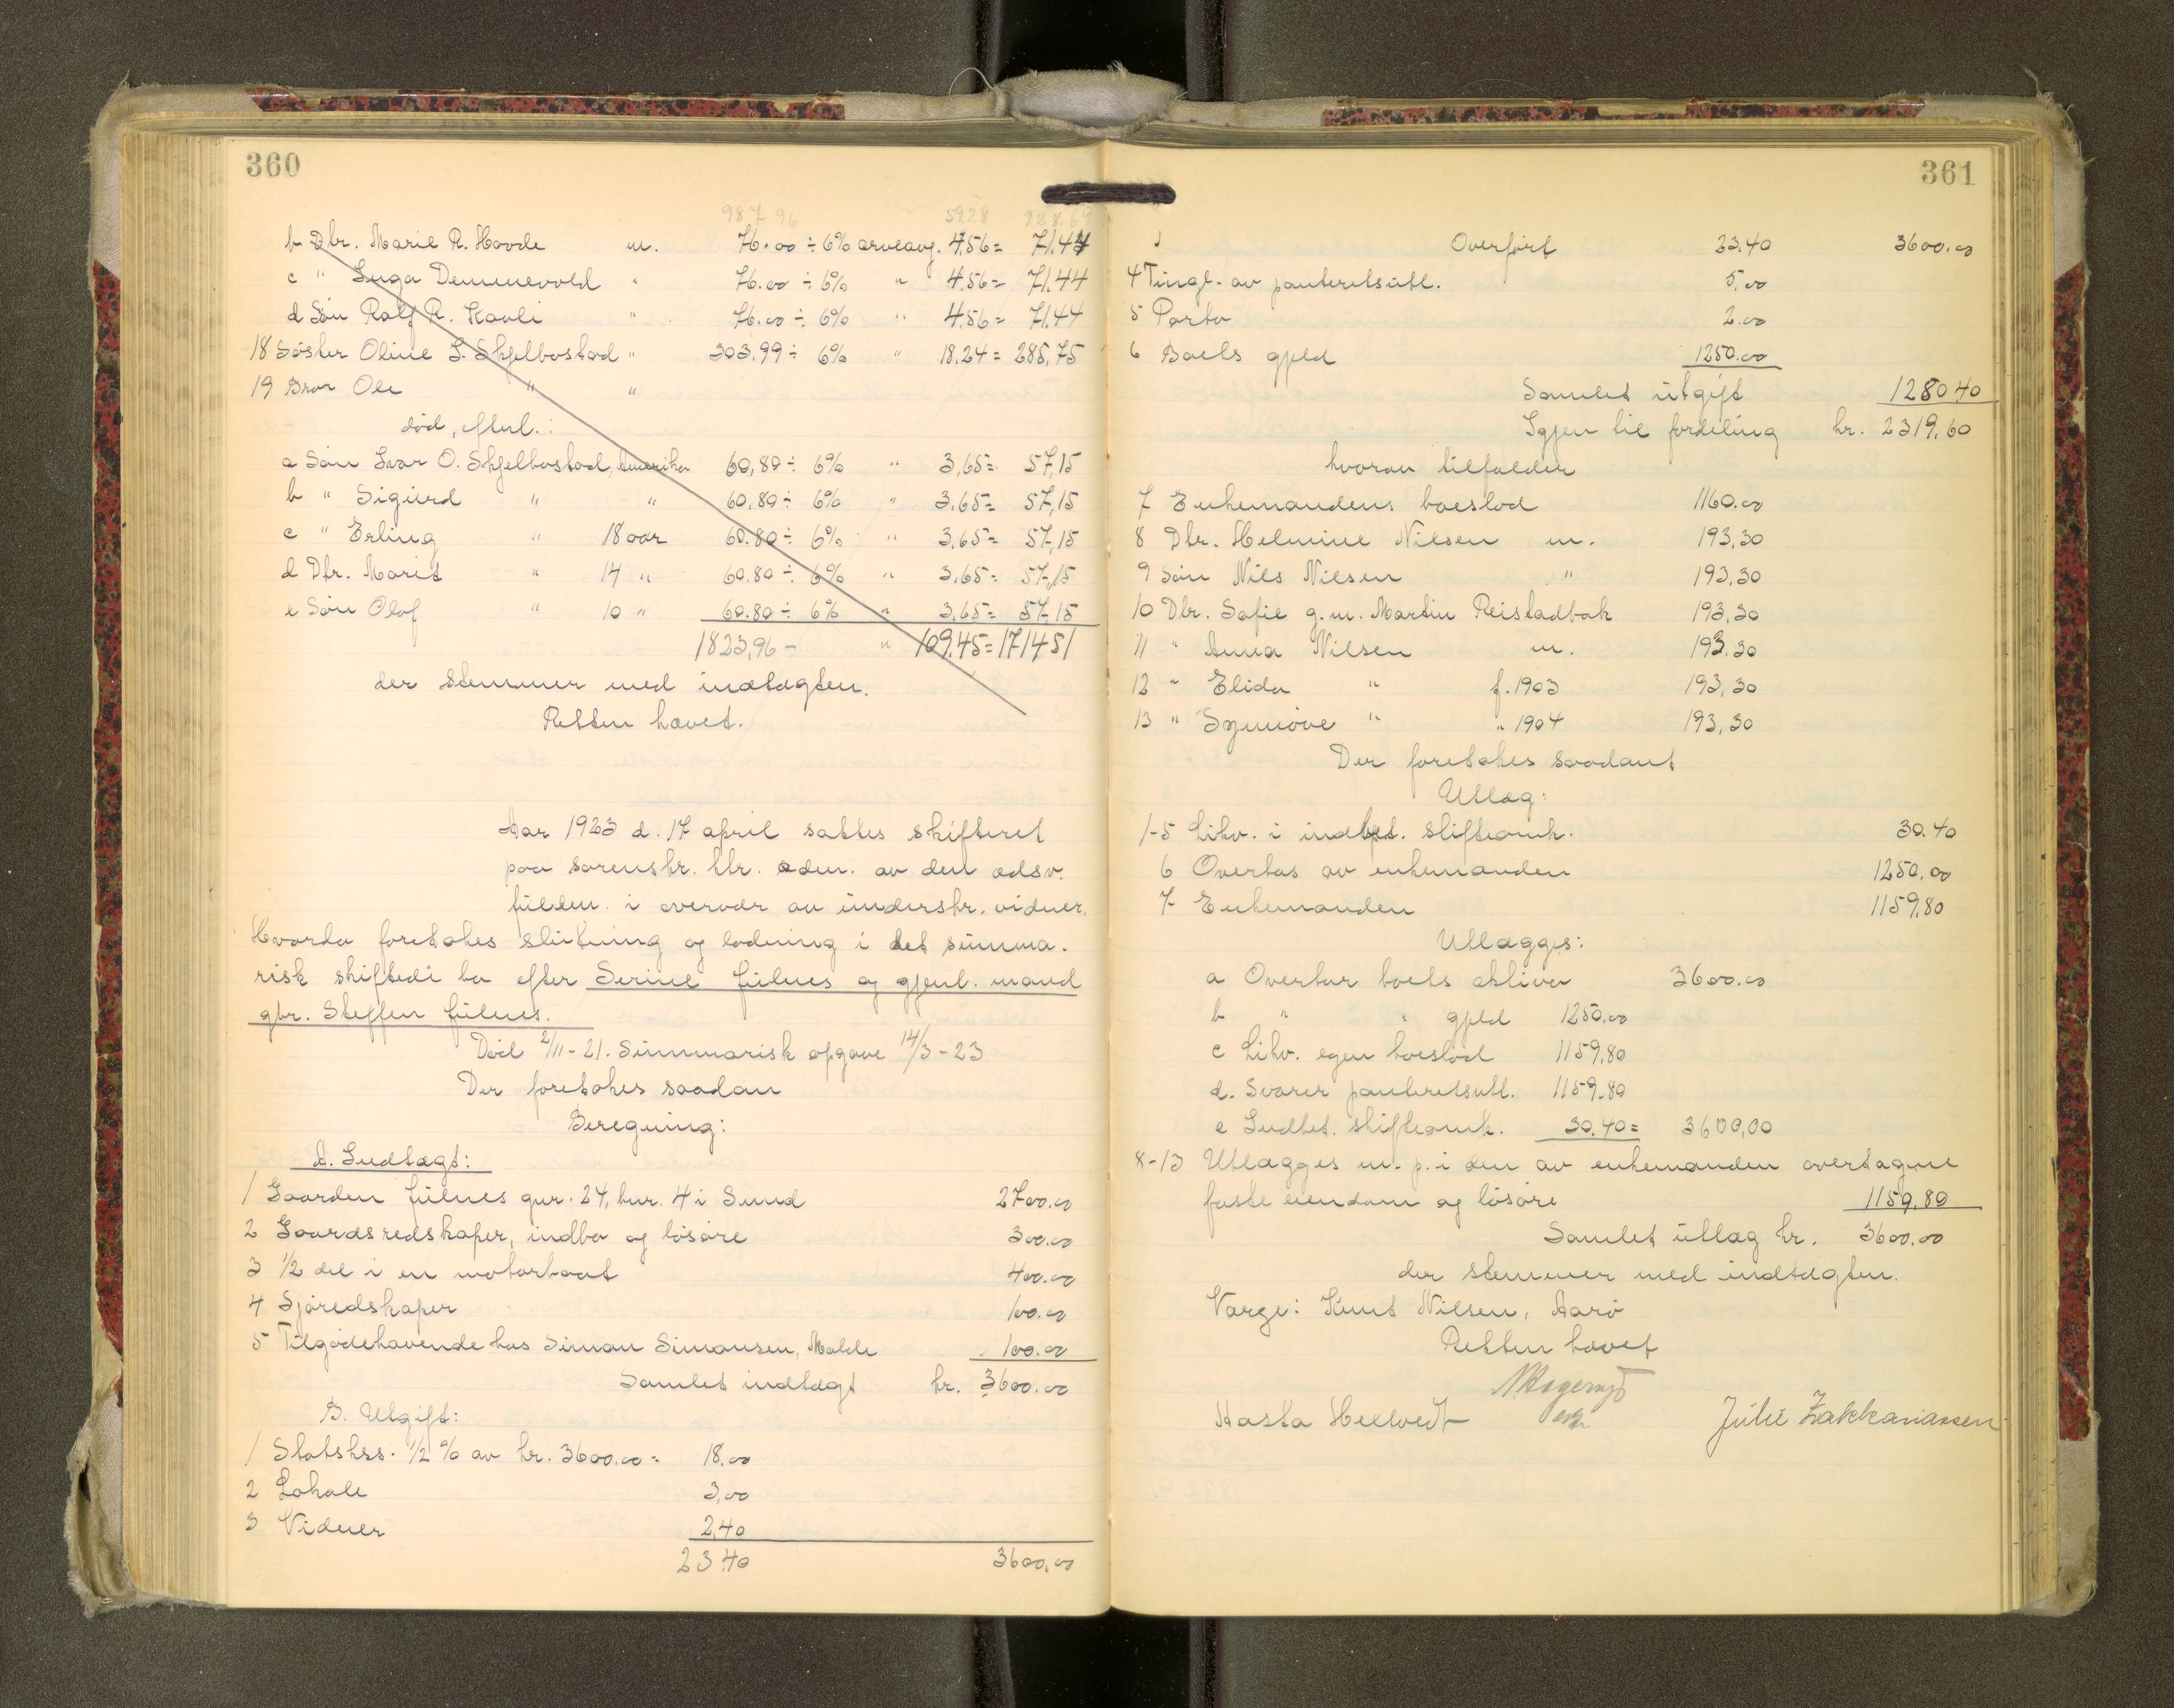 360
987 96 5928 928.69
b Dtr. Marie R. Hovde m. 76.00 ÷ 6% arveavg. 4.56 = 71.44
c " Inga Demmevold " 76.00 ÷ 6% " 4.56 = 71.44
d Søn Ralf R. Havli " 76.00 ÷ 6% " 4.56 = 71.44
18 Søster Oline I. Skjelbostad " 303.99 ÷ 6% " 18.24 = 285,75
19 Bror Ole " "
død, efterl.:
a Søn Ivar O. Skjelbostad, Amerika 60,80 ÷ 6% " 3,65 = 57,15
b " Sigurd " " 60.80 ÷ 6% " 3.65 = 57,15
c " Erling " 18 aar 60.80 ÷ 6% " 3,65 = 57,15
d Dtr. Marit " 14 " 60.80 ÷ 6% " 3,65 = 57,15
e Søn Olaf " 10 " 60.80 ÷ 6% " 3,65 = 57.15
1823,96 - " 109,45 = 1714 51
der stemmer med indtægten.
Retten hævet.
Aar 1923 d. 17 april sattes skifteret
paa sorenskr. ktr. adm. av den edsv.
fuldm. i overvær av underskr. vidner.
Hvorda foretokes slutning og lodning i det summa-
risk skiftedi bo efter Serine Julnes og gjenl. mand
gbr. Steffen Julnes.
Død 2/11 - 21. Summarisk opgave 14/3 - 23
Der foretokes saadan
Beregning:
A. Indtægt:
1 Gaarden Julnes gnr. 24, bnr. 4 i Sund 2700.00
2 Gaardsredskaper, indbo og løsøre 300.00
3 1/2 del i en motorbaat 400.00
4 Sjøredskaper 100.00
5 Tilgodehavende hos Simon Simonsen, Molde 100.00
Samlet indtægt kr. 3600.00
B. Utgift:
1 Statskss. 1/2 % av kr. 3600.00 = 18.00
2 Lokale 3,00
3 Vidner 2,40
23.40 3600,00
361
Overført 23.40 3600.00
4 Tingl. av panteretsutl. 5,00
5 Porto 2.00
6 Boets gjeld 1250.00
Samlet utgift 1280 40
Igjen til fordeling kr. 2319,60
hvorav tilfalder
7 Enkemandens boeslod 1160.00
8 Dtr. Helmine Nilsen m. 193,30
9 Søn Nils Nilsen " 193,30
10 Dtr. Sofie g.m. Martin Reistadbak 193,30
11 " Anna Nilsen m. 193.30
12 " Elida " f. 1903 193,30
13 " Synnøve " " 1904 193,30
Der foretokes saadant
Utlæg:
1-5 Likv. i indbet. skifteomk. 30.40
6 Overtas av enkemanden 1250,00
7 Enkemanden 1159,80
Utlægges:
a Overtar boets aktiva 3600.00
b " " gjeld 1250.00
c Likv. egen boeslod 1159,80
d. Svarer panteretsutl. 1159.80
e Indbet. skifteomk. 30.40 = 3600,00
8-13 Utlægges m. p. i den av enkemanden overtagne
faste eiendom og løsøre 1159,80
Samlet utlæg kr. 3600.00
der stemmer med indtægten.
Værge: Knut Nilsen, Aarø
Retten hævet
Aasta Hellvedt Julie Zakkariassen